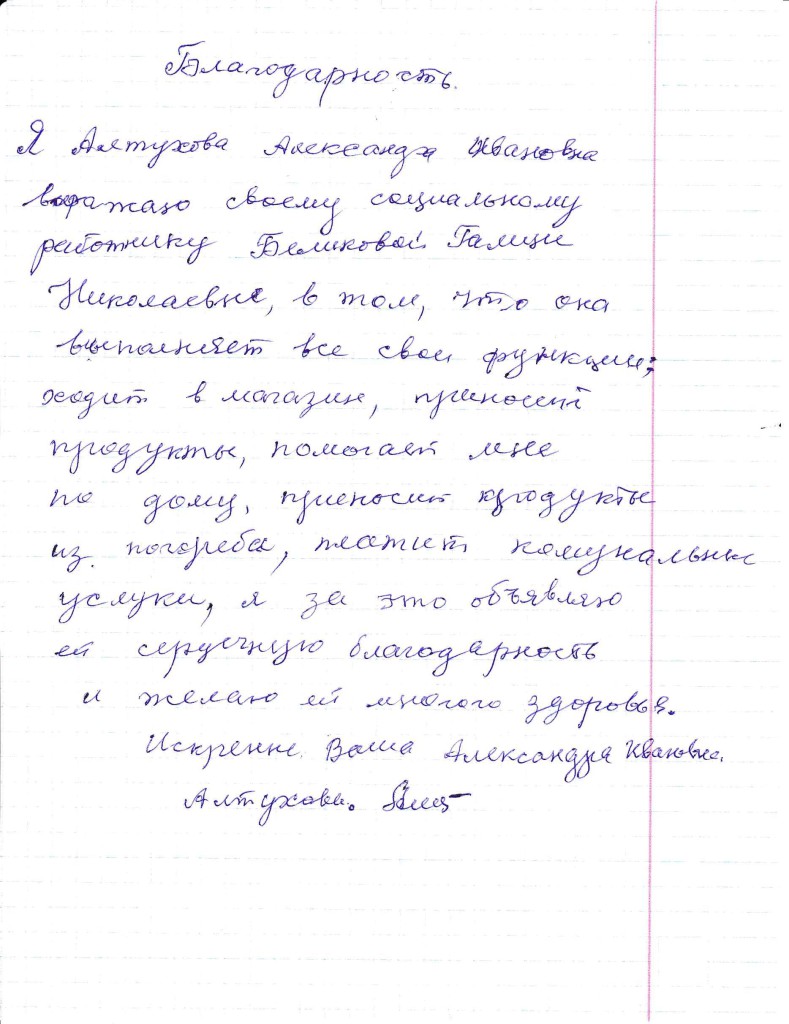 Благодарность.
Я Алтухова Александра Ивановна
выражаю своему социальному
работнику Беликовой Галине
Николаевне, в том, что она
выполняет все свои функции;
ходит в магазин, приносит
продукты, помогает мне
по дому, приносит продукты
из погреба, платит комунальные
услуки, я за это объявляю
ей сердечную благодарность
и желаю ей многого здоровья.
Искренне Ваша Александра Ивановна.
Алтухова.